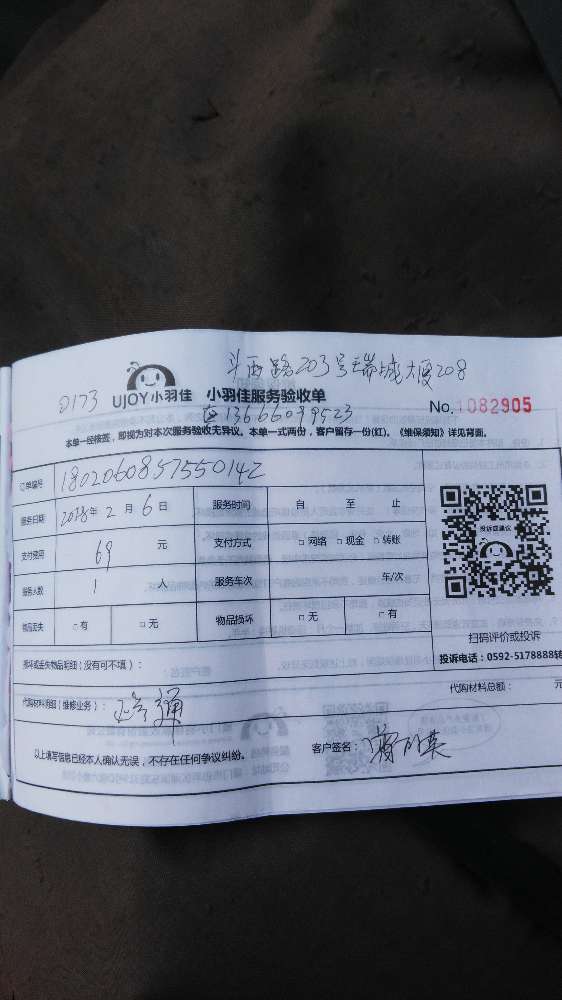 斗西路203号瑞城大厦208
0173 UJOY小羽佳 小羽佳服务验收单
13666099523 No.1082905
本单一经核签，即视为对本次服务验收无异议。本单一式两份，客户留存一份(红)。《维保须知》详见背面。
订单编号 1802060857550142
服务日期 2018年2月6日 服务时间 自 至 止
支付费用 69 元 支付方式 □网络 □现金 □转账
服务人数 1 人 服务车次 车/次
物品丢失 □有 □无 物品损坏 □无 □有
投诉或建议
扫码评价或投诉
投诉电话：0592-5178888转
损坏或丢失物品明细（没有可不填）：
代购材料明细（维修业务）： 代购材料总额： 元
以上填写信息已经本人确认无误，不存在任何争议纠纷。 客户签名：